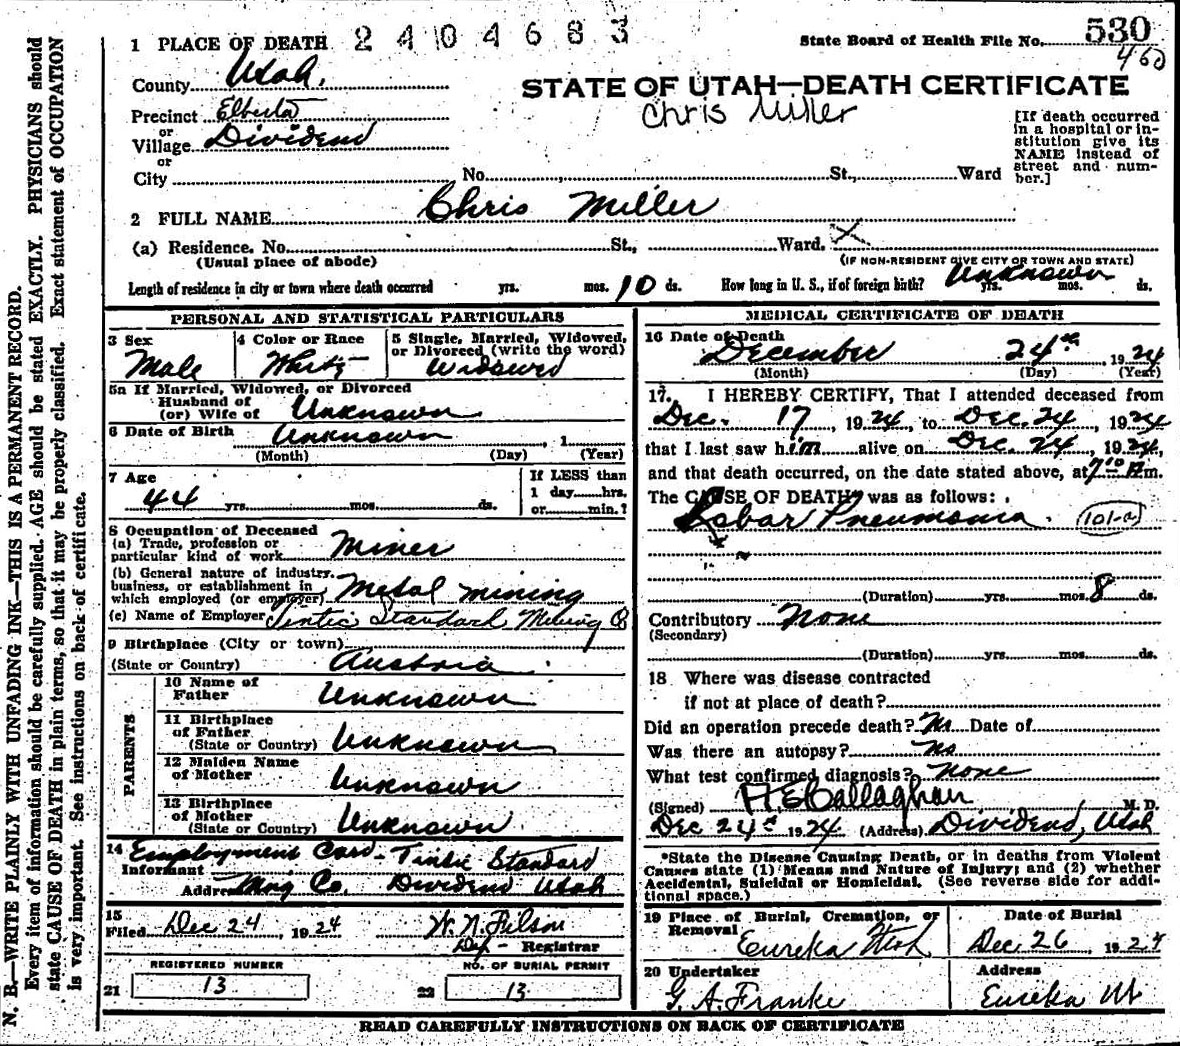 1 PLACE OF DEATH 2404683
State Board of Health File No. 530
460
County Utah.
STATE OF UTAH—DEATH CERTIFICATE
Chris Miller
Precinct Elberta
or
Village Dividend
or
City No. St., Ward
[If death occurred
in a hospital or in-
stitution give its
NAME instead of
street and num-
ber.]
2 FULL NAME Chris Miller
(a) Residence. No. St., Ward. X
(Usual place of abode) (IF NON-RESIDENT GIVE CITY OR TOWN AND STATE)
Length of residence in city or town where death occurred yrs. mos. 10 ds. How long in U. S., if of foreign birth? Unknown yrs. mos. ds.
PERSONAL AND STATISTICAL PARTICULARS
3 Sex
Male
4 Color or Race
White
5 Single, Married, Widowed,
or Divorced (write the word)
Widowed
5a If Married, Widowed, or Divorced
Husband of
(or) Wife of Unknown
6 Date of Birth Unknown, 1
(Month) (Day) (Year)
7 Age
44 yrs. mos. ds.
If LESS than
1 day hrs.
or min.?
8 Occupation of Deceased
(a) Trade, profession or
particular kind of work Miner
(b) General nature of industry,
business, or establishment in
which employed (or employer) Metal mining
(c) Name of Employer Tintic Standard Mining Co
9 Birthplace (City or town)
(State or Country) Austria
PARENTS
10 Name of
Father Unknown
11 Birthplace
of Father
(State or Country) Unknown
12 Maiden Name
of Mother Unknown
13 Birthplace
of Mother
(State or Country) Unknown
14 Employment Card - Tintic Standard
Informant
Address Mng Co. Dividend Utah
15
Filed Dec 24, 1924 W. N. Filson
Dep - Registrar
REGISTERED NUMBER
21 13
NO. OF BURIAL PERMIT
22 13
MEDICAL CERTIFICATE OF DEATH
16 Date of Death
December 24th, 1924
(Month) (Day) (Year)
17. I HEREBY CERTIFY, That I attended deceased from
Dec. 17, 1924, to Dec. 24, 1924
that I last saw him alive on Dec. 24, 1924,
and that death occurred, on the date stated above, at 7 10 P m.
The CAUSE OF DEATH* was as follows:
Lobar Pneumonia. 101-a
(Duration) yrs. mos. 8 ds.
Contributory None
(Secondary)
(Duration) yrs. mos. ds.
18 Where was disease contracted
if not at place of death?
Did an operation precede death? No Date of
Was there an autopsy? No
What test confirmed diagnosis? None
(Signed) H E Callaghan M. D.
Dec 24th 1924 (Address) Dividend, Utah
*State the Disease Causing Death, or in deaths from Violent
Causes state (1) Means and Nature of Injury; and (2) whether
Accidental, Suicidal or Homicidal. (See reverse side for addi-
tional space.)
19 Place of Burial, Cremation, or
Removal
Eureka Utah
Date of Burial
Dec 26 1924
20 Undertaker
G. A. Franke
Address
Eureka Ut
READ CAREFULLY INSTRUCTIONS ON BACK OF CERTIFICATE
N. B.—WRITE PLAINLY WITH UNFADING INK—THIS IS A PERMANENT RECORD.
Every item of information should be carefully supplied. AGE should be stated EXACTLY. PHYSICIANS should
state CAUSE OF DEATH in plain terms, so that it may be properly classified. Exact statement of OCCUPATION
is very important. See instructions on back of certificate.